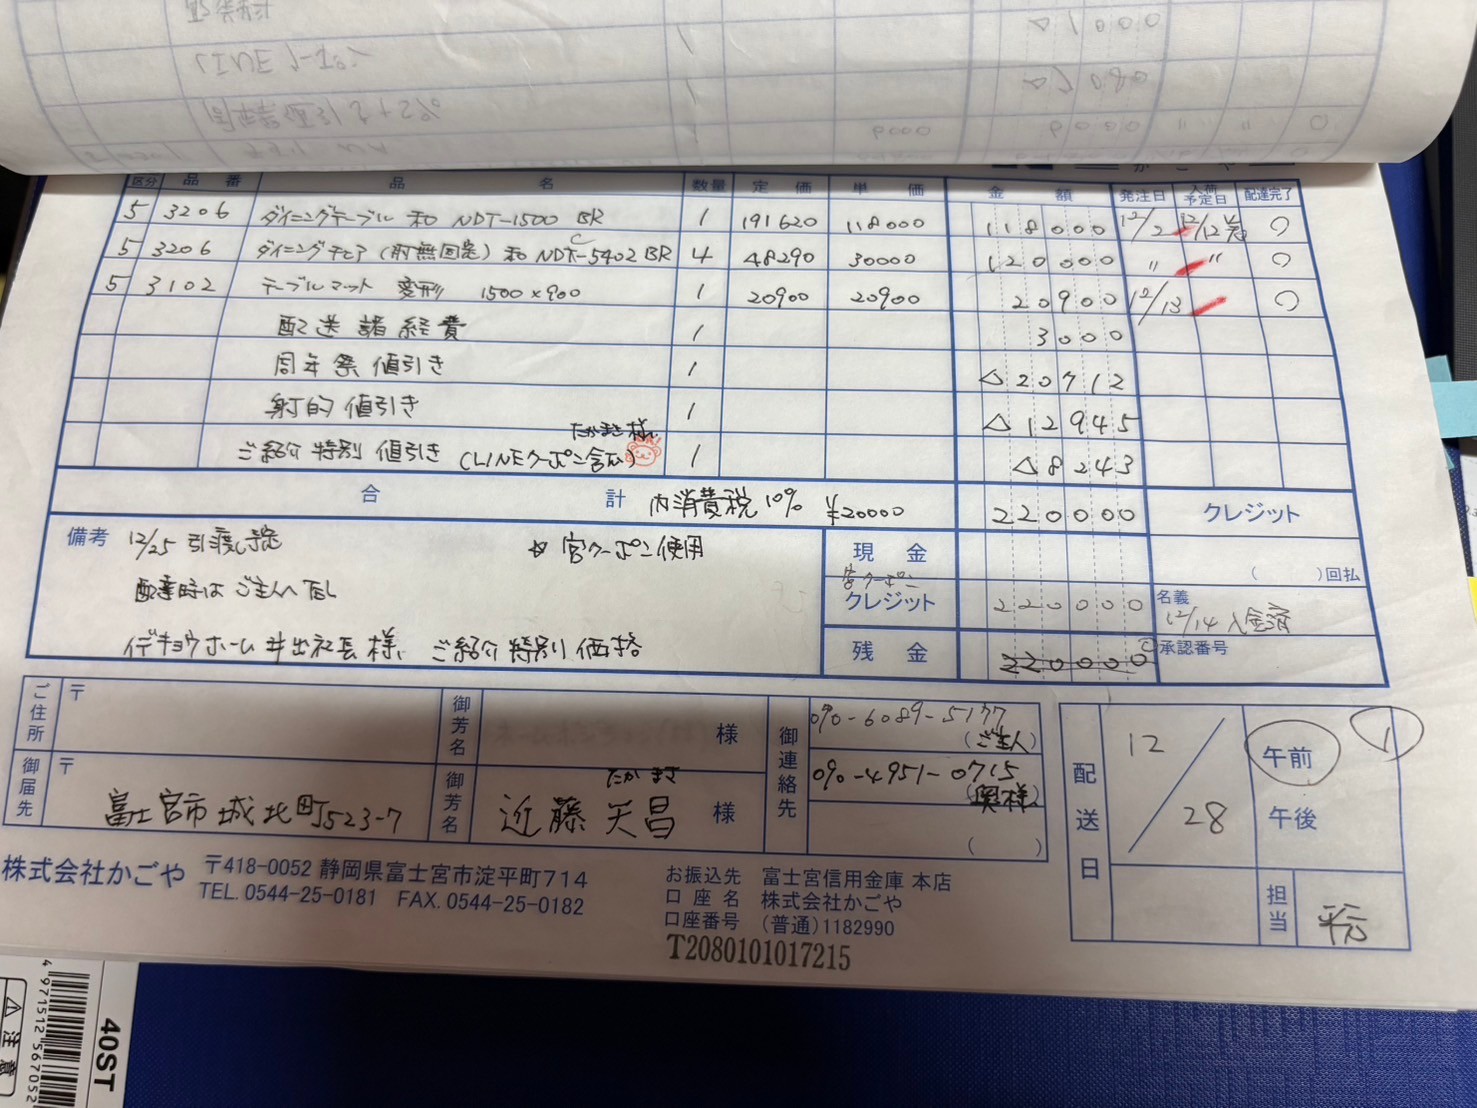 区分 品番 品名 数量 定価 単価 金額 発注日 入荷予定日 配達完了
5 3206 ダイニングテーブル 和 NDT-1500 BR 1 191620 118000 118000 12/2 12/12
5 3206 ダイニングチェア (肘無固定) 和 NDC-5402 BR 4 48290 30000 120000 〃 〃
5 3102 テーブルマット 変形 1500×900 1 20900 20900 20900 12/13
配送諸経費 1 3000
周年祭値引き 1 △20712
射的値引き 1 △12945
たかまさ様
ご紹介特別値引き (LINEクーポン含む) 1 △8243
合計 内消費税10% ¥20000 220000 クレジット
備考 12/25 引渡し予定
☆宮クーポン使用
配達時はご主人へTEL
イデキョウホーム 井出社長様、ご紹介特別価格
現金
( )回払
宮クーポン
クレジット 220000
名義
12/14 入金済
残金 220000 0
承認番号
ご住所 〒
御芳名 様
御届先 〒
富士宮市城北町523-7
御芳名
たかまさ
近藤天昌 様
御連絡先
090-6089-5177
(ご主人)
090-4951-0715
(奥様)
( )
配送日 12/28
午前 1
午後
担当
株式会社かごや 〒418-0052 静岡県富士宮市淀平町714
TEL. 0544-25-0181 FAX. 0544-25-0182
お振込先 富士宮信用金庫 本店
口座名 株式会社かごや
口座番号 (普通)1182990
T2080101017215
4 971512 567052
40ST
注意